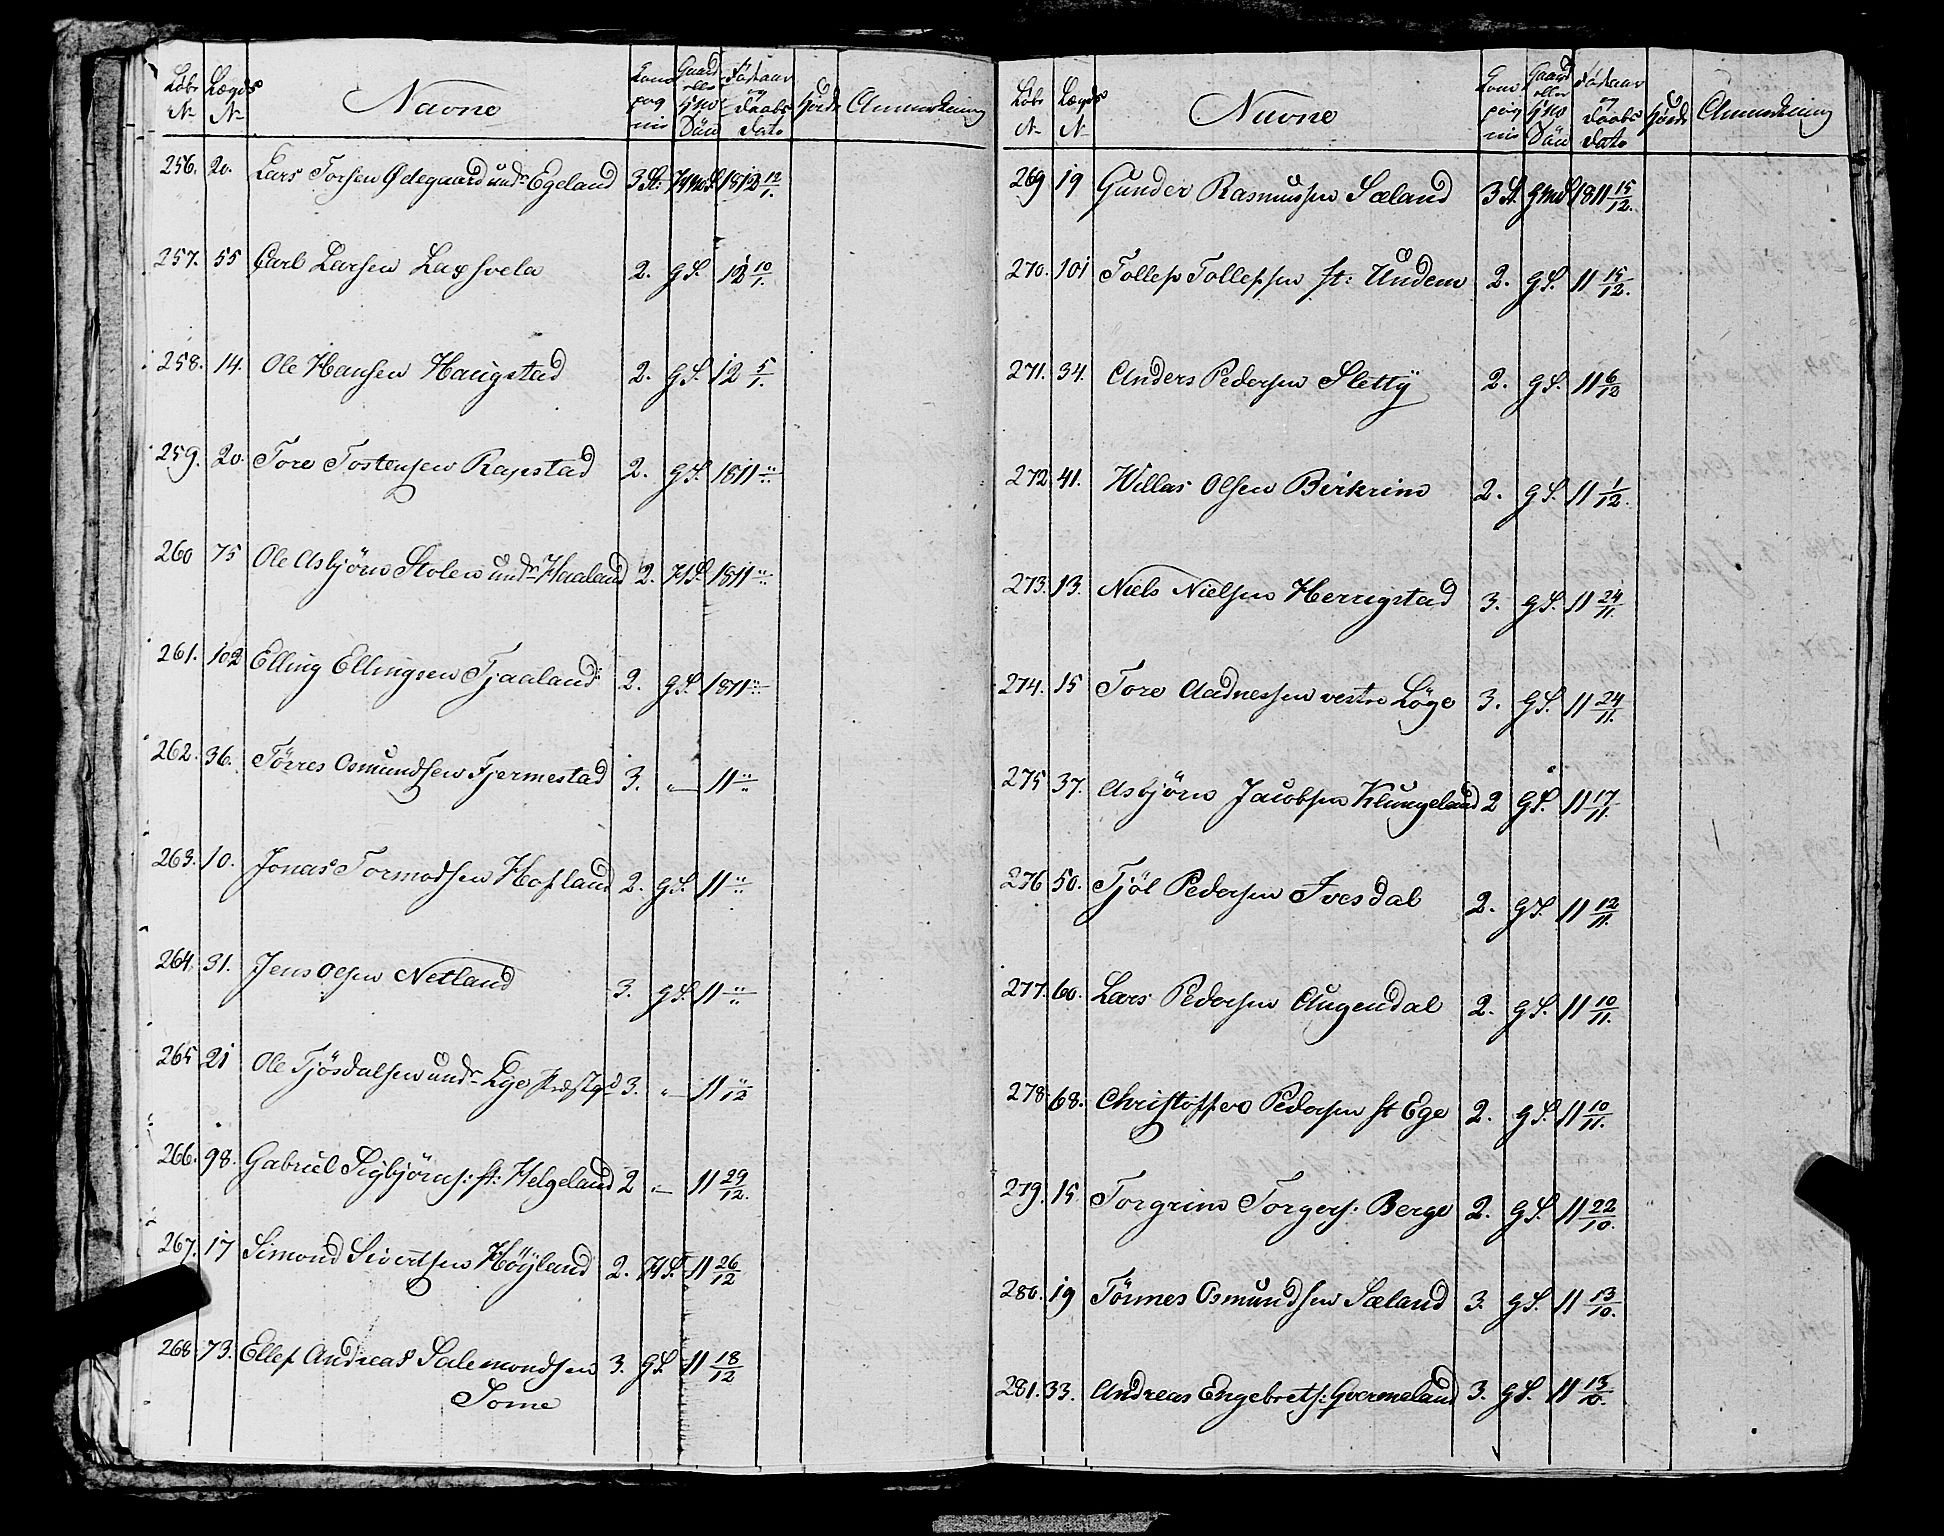 Løbs Lægds Navne Com Gaard Födaar Hvor Anmærkning
No No pag eller og
nie Hmd Daabs
Sön dato
256. 20. Lars Torsen Ødegaard und: Egeland 3 St: HmdS. 1812 12/1.
257. 55 Carl Larsen Laxsvela 2. g S. 12 10/1.
258. 14. Ole Hansen Haugstad 2. g S. 12 5/1.
259. 20. Tore Tostensen Rapstad 2. g S. 1811 "/"
260 75 Ole Asbjörn Stolen und: Haaland 2. H S. 1811 "/"
261. 102 Elling Ellingsen Tjaaland 2. g S. 1811 "/"
262. 36. Törres Osmundsen Fjermestad 3. " 11 "/"
263. 10. Jonas Tormodsen Hofland 2. g S. 11 "/"
264. 31. Jens Olsen Netland 3. g S. 11 "/"
265 21 Ole Tjösdalsen und: Lye Præstgd 3. " 11 "/12
266. 98. Gabriel Sigbjörns: st: Helgeland 2 " 11 29/12.
267. 17 Simond Sivertsen Höÿland 2. H S. 11 26/12
268. 73. Ellef Andreas Salemondsen 3. g S. 11 18/12
Tome
Løbs Lægds Navne Com Gaard Födaar Hvor Anmærkning
No No pag eller og
nie Hmd Daabs
Sön dato
269 19 Gunder Rasmussen Sæland 3 St. gmdS 1811 15/12.
270. 101 Tollef Tollefsen st: Undem 2. g S. 11 15/12.
271. 34. Anders Pedersen Slettÿ 2. g S. 11 6/12
272 41. Villas Olsen Birkrim 2. g S. 11 1/12.
273. 13. Niels Nielsen Herrigstad 3. g S. 11 24/11.
274. 15 Tore Aadnessen vestre Løge 3. g S. 11 24/11.
275 37. Asbjörn Jacobsen Klungeland 2 g S. 11 17/11.
276 50. Tjöl Pedersen Ivesdal 2. g S. 11 12/11.
277. 60. Lars Pedersen Augendal 2. g S. 11 10/11.
278. 68. Christoffer Pedersen st Ege 2. g S. 11 10/11.
279. 15. Torgrim Torgers: Berge 2. g S. 11 22/10.
280. 19 Tönnes Osmundsen Sæland 3. g S. 11 13/10.
281. 33. Andreas Engebrets: Gvermeland 3. g S. 11 13/10.